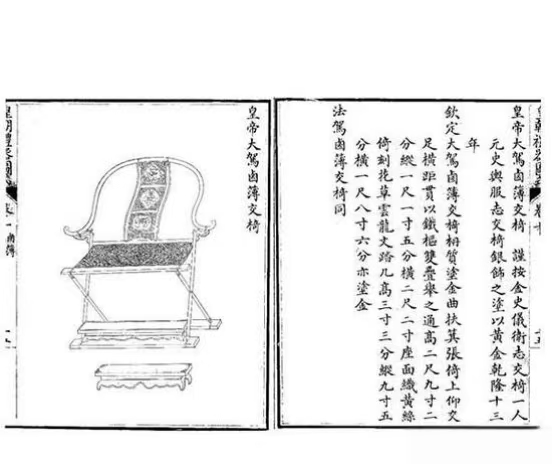 皇帝大駕鹵簿交椅 謹按金史儀衛志交椅一人
元史輿服志交椅銀飾之塗以黃金乾隆十三
年
欽定大駕鹵簿交椅枬質塗金曲扶箕張倚上仰交
足橫距貫以鐵樞雙疊舉之通高二尺九寸二
分縱一尺一寸五分橫二尺二寸座面織黃絲
倚刻花草雲龍文踏几高三寸三分縱九寸五
分橫一尺八寸六分亦塗金
法駕鹵簿交椅同
皇帝大駕鹵簿交椅